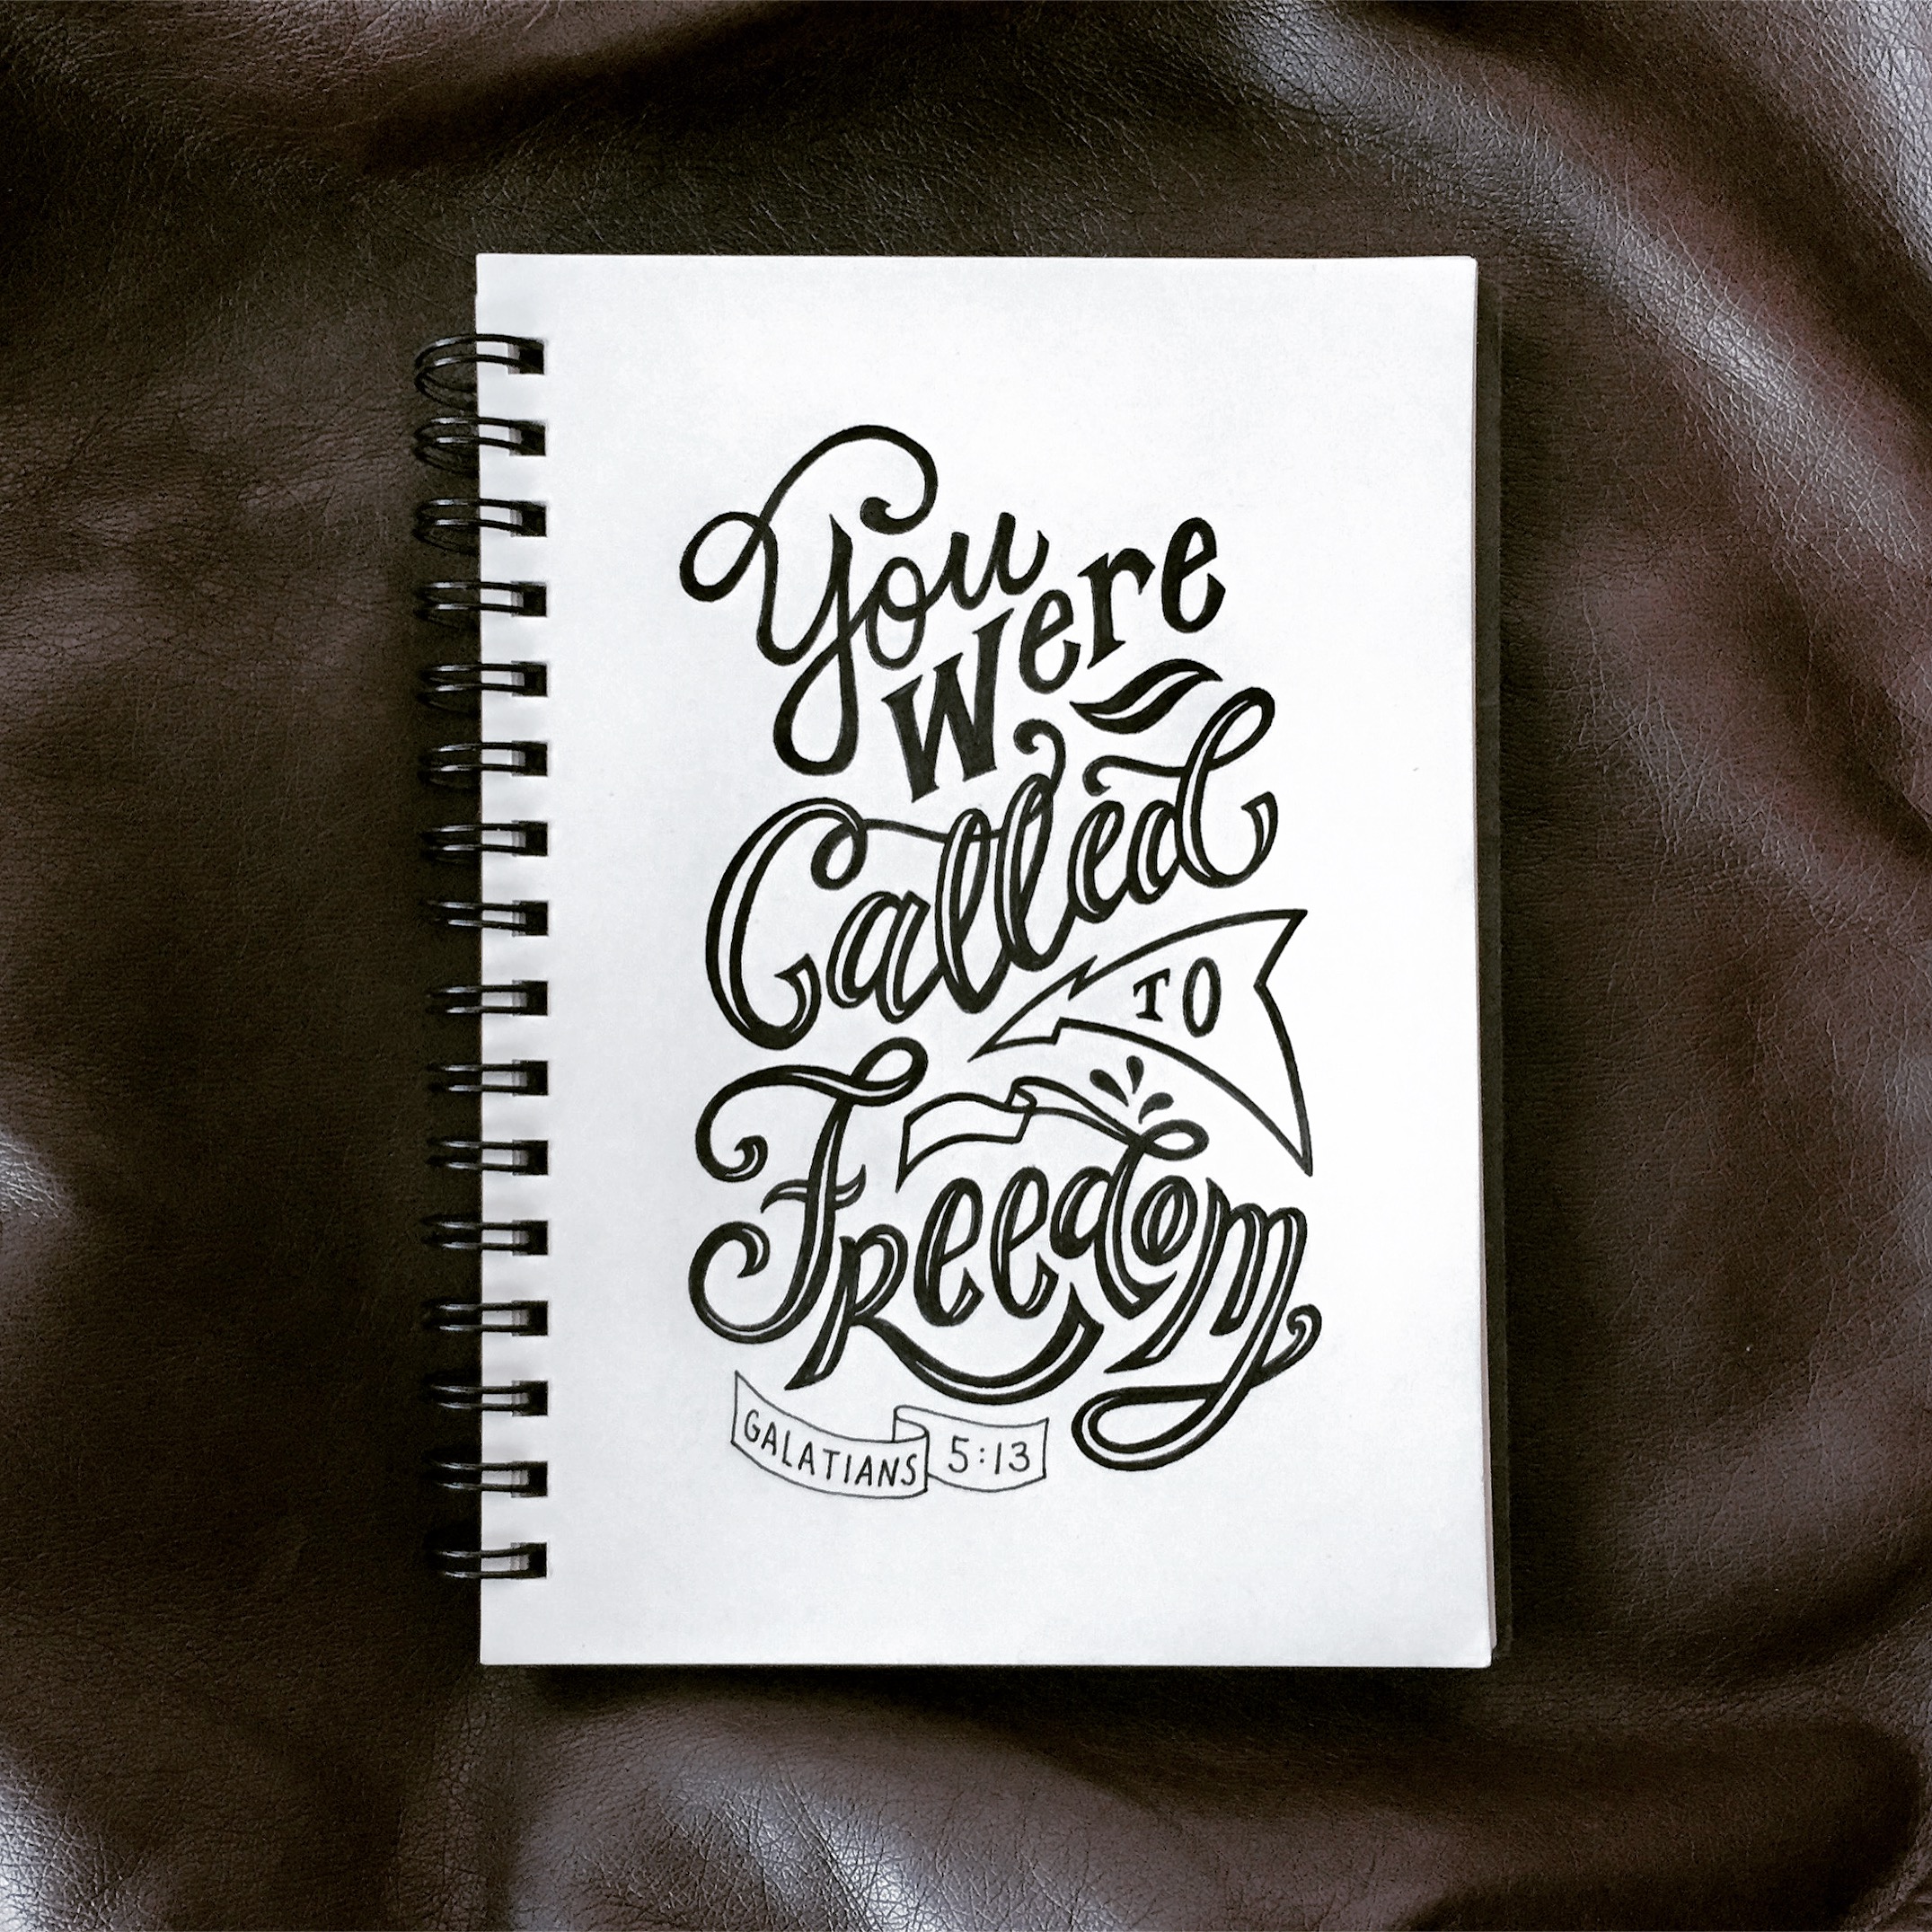 You
Were
Called
TO
Freedom
GALATIANS 5:13